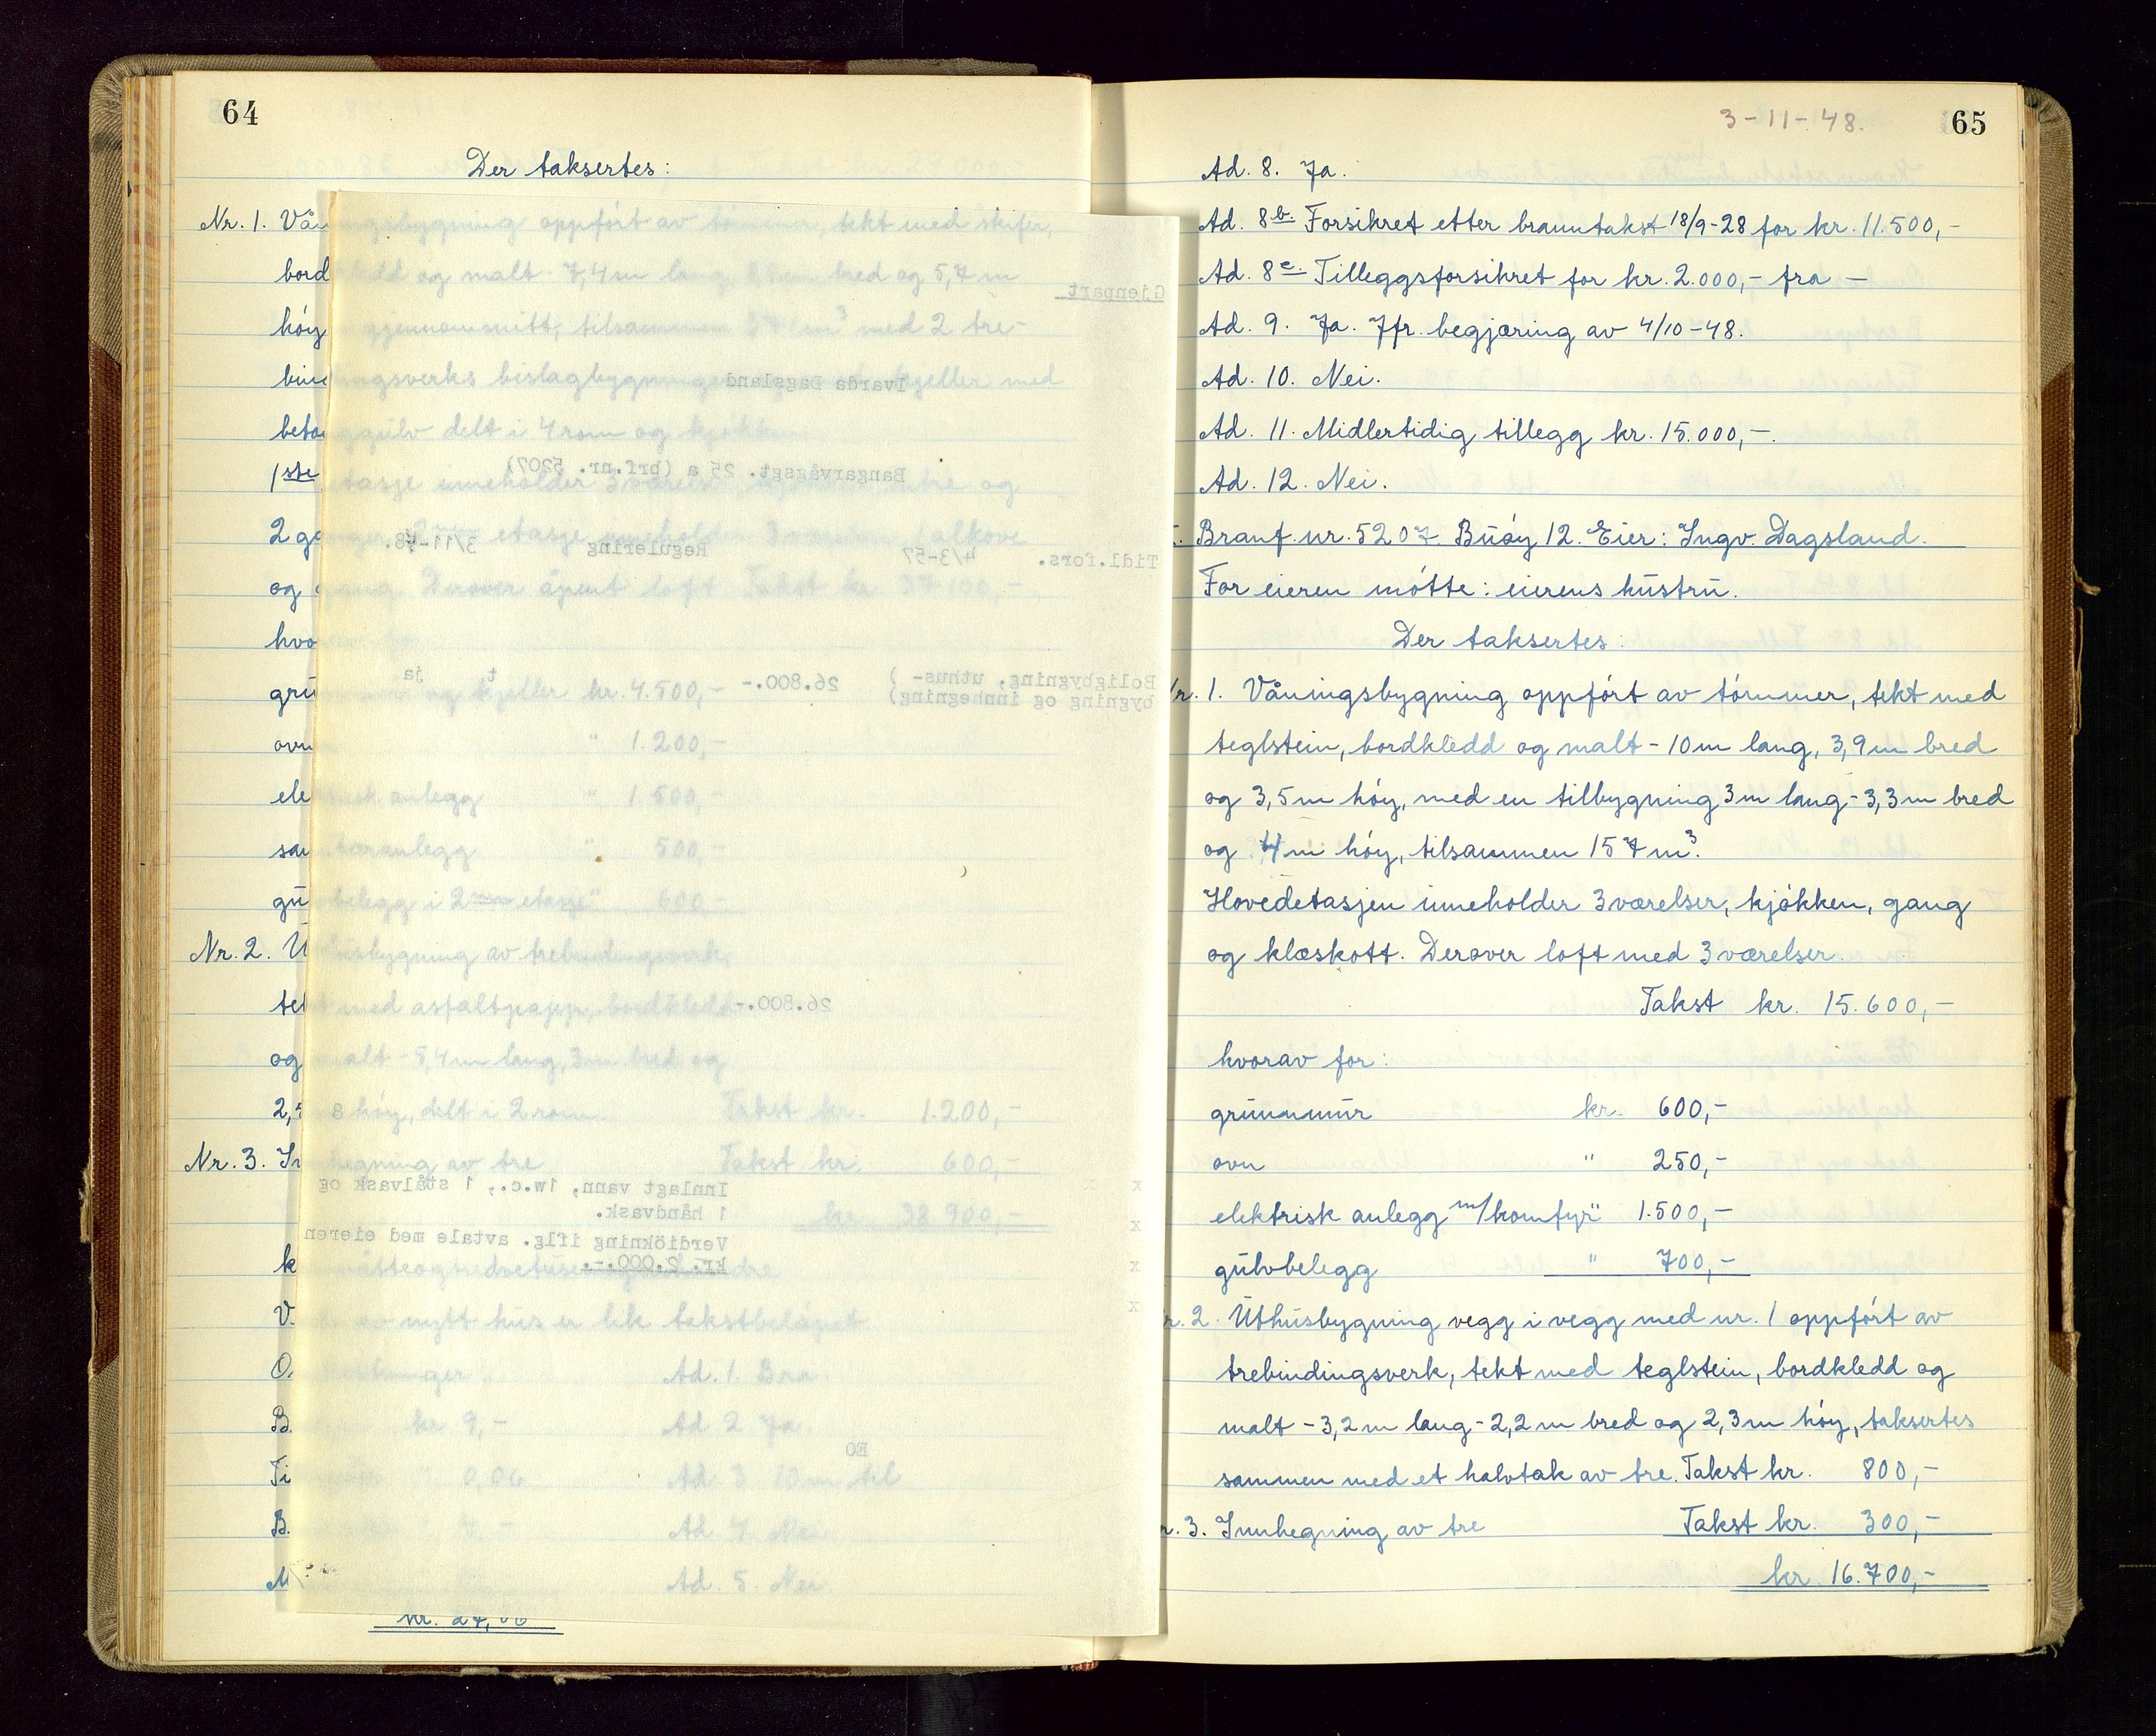 64
Der taksertes:
Nr. 1. Våningsbygning oppført av tømmer, tekt med skifer,
bordkledd og malt - 7,4 m lang bred og 5,7 m
høy gjennomsnitt, tilsammen m³ med 2 tre-
bindingsverks bislagbygninger kjeller med
betonggulv delt i 4 rom og kjøkken
1ste etasje inneholder 3 værelser og
2 ganger etasje inneholder 3 alkove
og gang. Derover åpent loft Takst kr 37 100,-
hvorav for
grunnmur og kjeller kr. 4.500,-
ovn " 1.200,-
elektrisk anlegg " 1.500,-
sanitæranlegg " 500,-
gulvbelegg i 2 etasje " 600,-
Nr. 2. Uthusbygning av trebindingsverk,
tekt med asfaltpapp, bordkledd
og malt - 5,4 m lang, 3 m bred og
høy, delt i 2 rom. Takst kr. 1.200,-
Nr. 3. Innhegning av tre Takst kr. 600,-
kr 38 900,-
av nytt hus er lik takstbeløpet
Ad. 1. Bra.
B. kr 9,- Ad 2 Ja.
Ti " 0,06 Ad 3 10 m til
B. Ad 4 Nei
M Ad. 5. Nei
kr. 27,06
Gjenpart
Ivarda Dagsland
Bangarvågsgt. 25 a (brf.nr. 5207)
Tidl.fors. 4/3-57 Regulering 3/11-48.
Boligbygning, uthus- ) 26.800.- t ja
bygning og innhegning)
26.800.-
8
x x Innlagt vann, 1w.c., 1 stålvask og
x 1 håndvask.
Verdiökning iflg. avtale med eieren
x kr. 2.000.-.
x
EO
3-11-48. 65
Ad. 8. Ja.
Ad. 8b. Forsikret etter branntakst 18/9-28 for kr. 11.500,-
Ad. 8c. Tilleggsforsikret for kr. 2.000,- fra -
Ad. 9. Ja. Jfr. begjæring av 4/10-48.
Ad. 10. Nei.
Ad. 11. Midlertidig tillegg kr. 15.000,-.
Ad. 12. Nei.
Branf. nr. 5207. Buøy 12. Eier: Ingv. Dagsland.
For eieren møtte: eierens hustru.
Der taksertes:
Nr. 1. Våningsbygning oppført av tømmer, tekt med
teglstein, bordkledd og malt - 10 m lang, 3,9 m bred
og 3,5 m høy, med en tilbygning 3 m lang - 3,3 m bred
og 4 m høy, tilsammen 157 m³.
Hovedetasjen inneholder 3 værelser, kjøkken, gang
og klæskott. Derover loft med 3 værelser.
Takst kr. 15.600,-
hvorav for:
grunnmur kr. 600,-
ovn " 250,-
elektrisk anlegg m/komfyr " 1.500,-
gulvbelegg " 700,-
Nr. 2. Uthusbygning vegg i vegg med nr. 1 oppført av
trebindingsverk, tekt med teglstein, bordkledd og
malt - 3,2 m lang - 2,2 m bred og 2,3 m høy, taksertes
sammen med et halvtak av tre. Takst kr. 800,-
Nr. 3. Innhegning av tre Takst kr. 300,-
kr 16.700,-